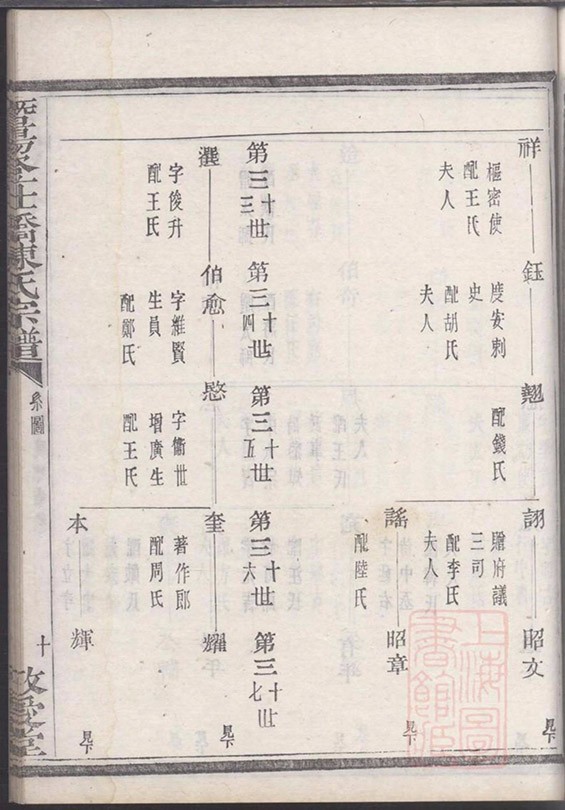 祥
樞密使
配王氏
夫人
鈺
度安刺
史
配胡氏
夫人
翹
配錢氏
詡
贈府議
三司
配李氏
夫人
昭文
見下
謠
配陸氏
昭章
見下
第三十三世
第三十四世
第三十五世
第三十六世
第三十七世
字俊升
配王氏
伯愈
字維賢
生員
配鄭氏
愍
字衛世
增廣生
配王氏
奎
著作郎
配周氏
耀
見下
本
輝
見下
陳氏宗譜
系圖
十
上海圖書館藏